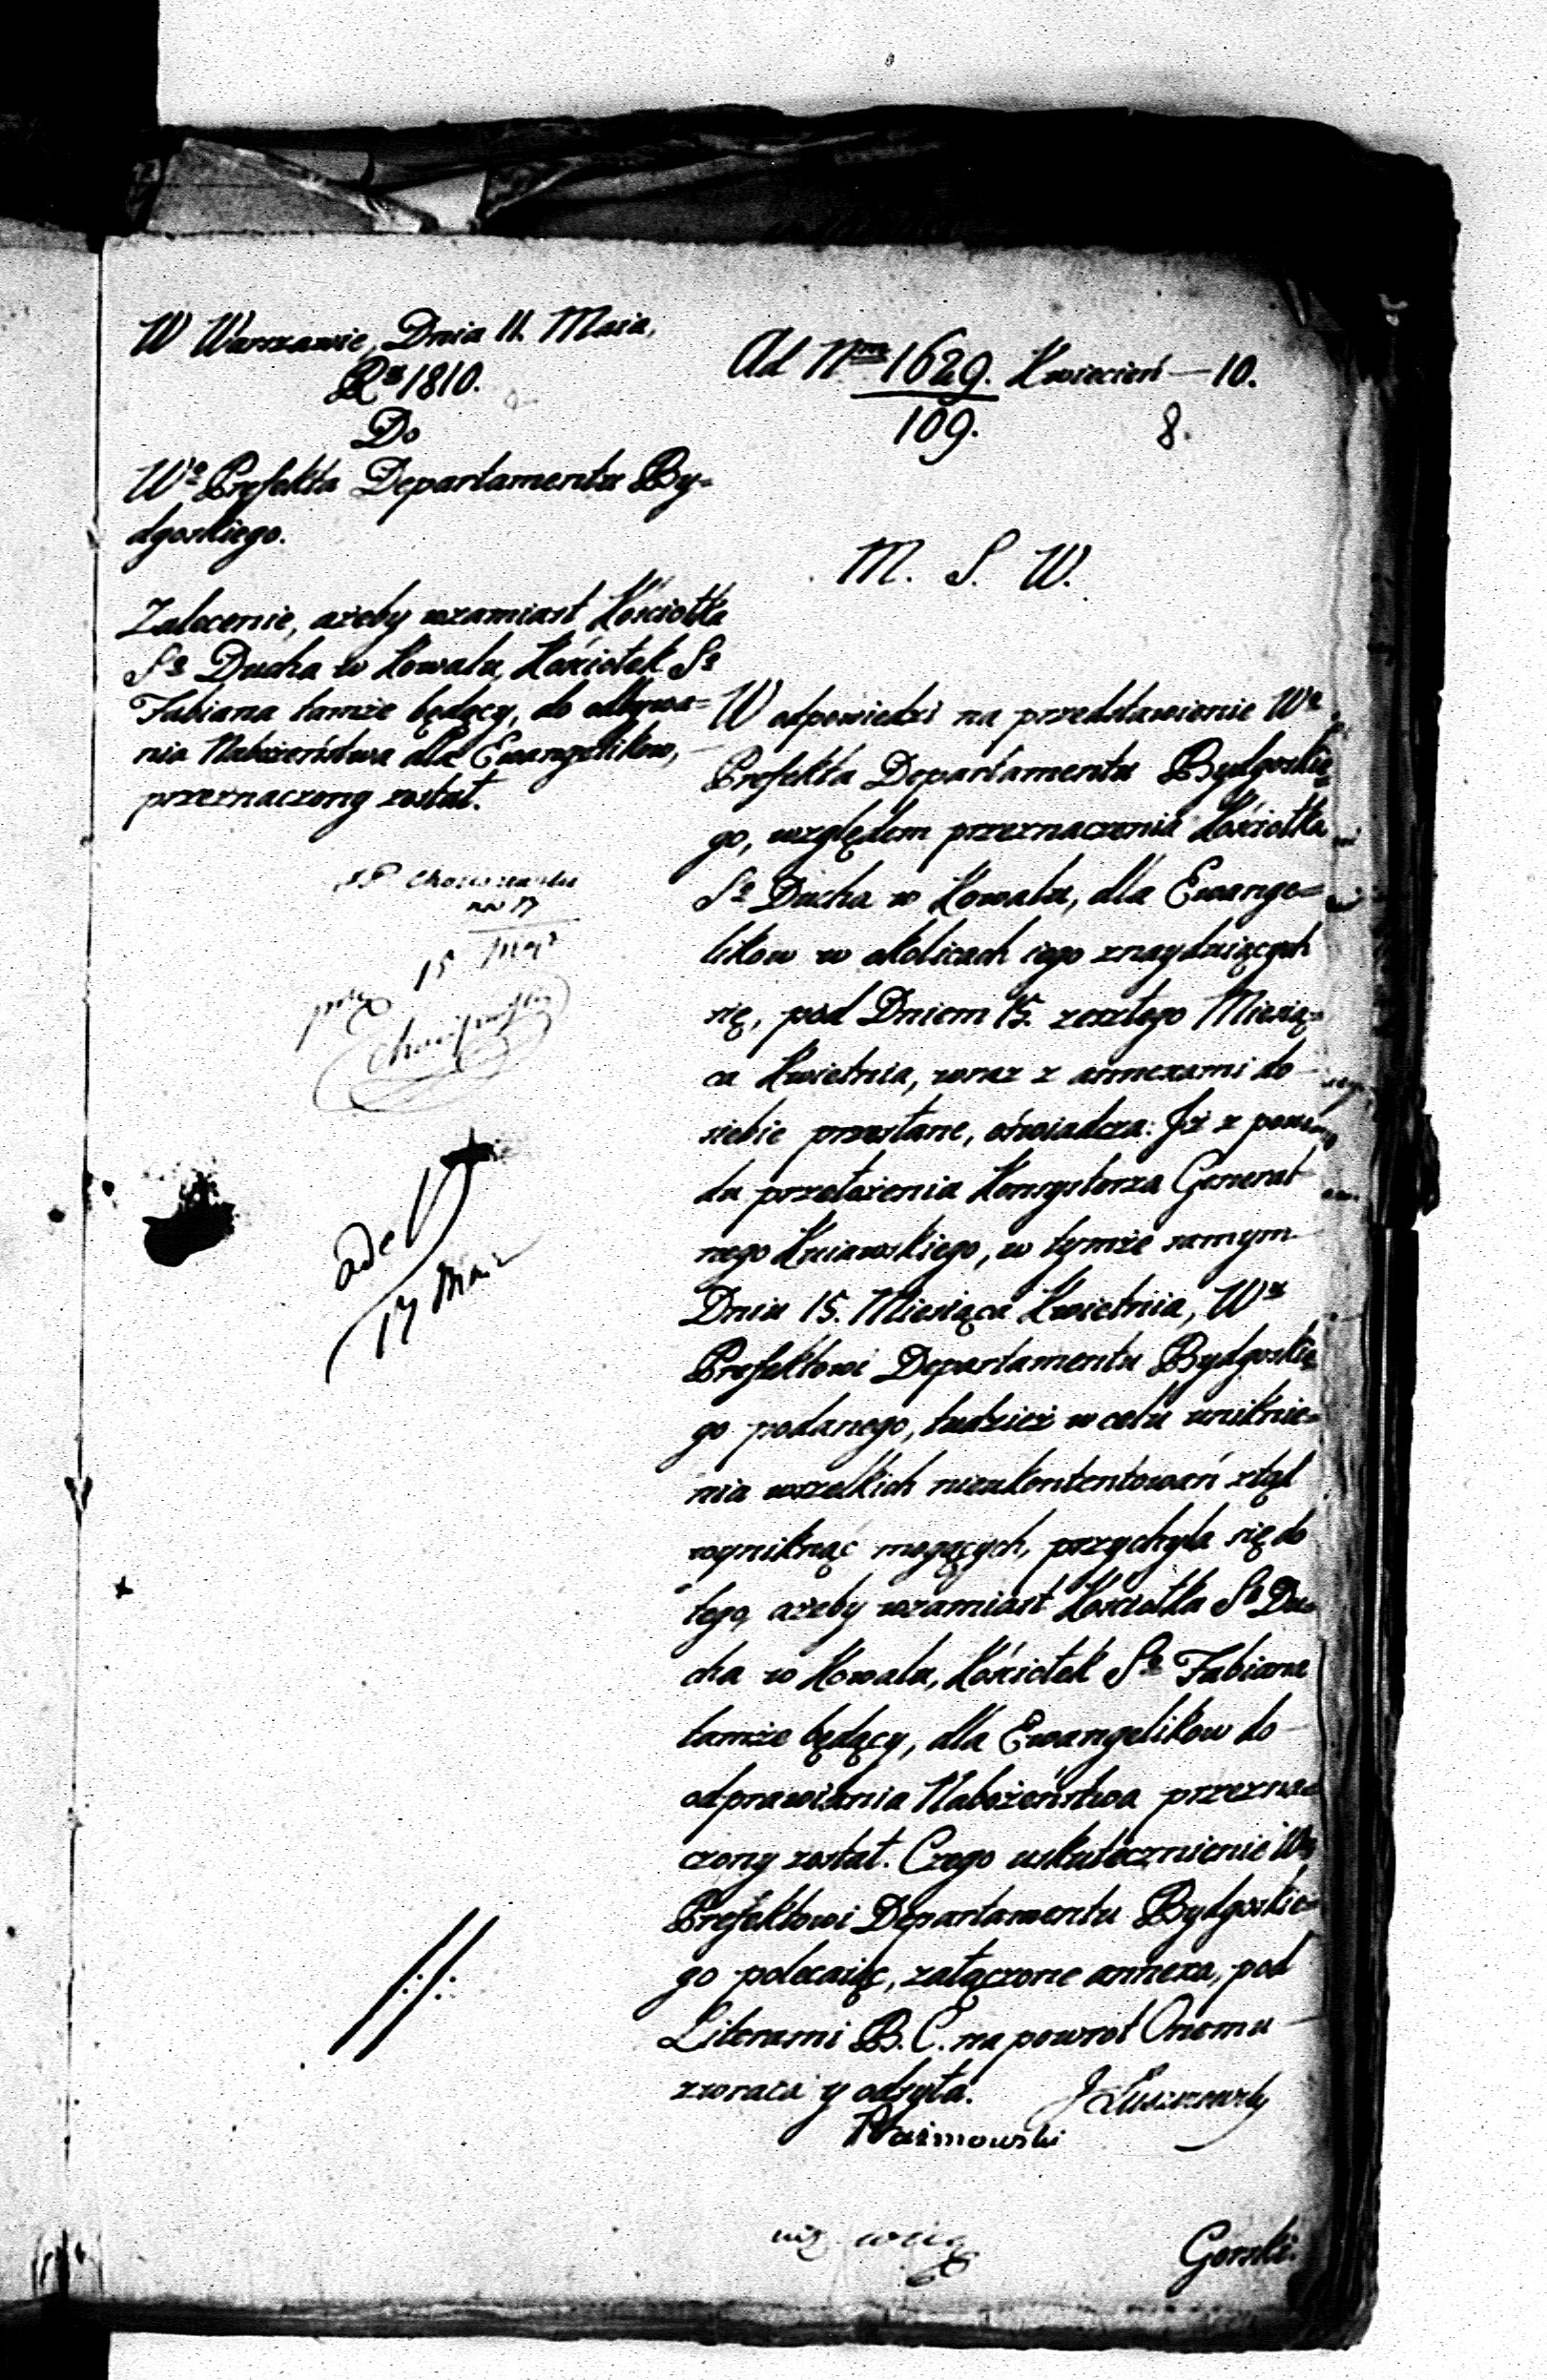 W Warszawie, Dnia 11. Maia,
Ru 1810.
Do
Wo Prefekta Departamentu By=
dgoskiego.
Zalecenie, ażeby wzamiast Kościołka
So Ducha w Kowalu, Kościołek So
Fabiana tamże będący, do odbywa=
nia Nabożeństwa dla Ewangelikow,
przeznaczony został.
15 Maja
17 Mai
Ad Nrm 1629. Kwiecień — 10.
109. 8.
M. S. W.
W odpowiedzi na przedstawienie Wo
Prefekta Departamentu Bydgoskie=
go, względem przeznaczenia Kościołka
So Ducha w Kowalu, dla Ewange=
likow w okolicach iego znayduiących
się, pod Dniem 15. zeszłego Miesią=
ca Kwietnia, wraz z annexami do
siebie przesłane, oświadcza: Jż z powo
du przełożenia Konsystorza General
nego Kuiawskiego, w tymże samym
Dniu 15. Miesiąca Kwietnia, Wu
Prefektowi Departamentu Bydgoskie
go podanego, tudzież w celu uniknie=
nia wszelkich nieukontentowań ztąd
wyniknąć mogących, przychyla się do
tego, ażeby wzamiast Kościołka So Du=
cha w Kowalu, Kościołek So Fabiana
tamże będący, dla Ewangelikow do
odprawiania Nabożeństwa przezna=
czony został. Czego uskutecznienie Wu
Prefektowi Departamentu Bydgoskie=
go polecaiąc, załączone annexa, pod
Literami B. C. na powrot Onemu
zwraca y odsyła. J Łuszczewsky
Górski.